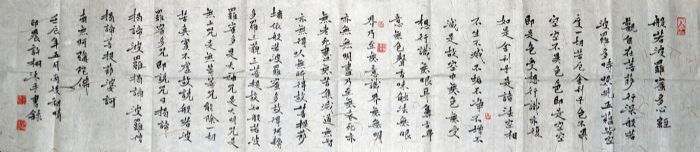 般若波羅蜜多心經
觀自在菩薩行深般若
波羅蜜多時照見五蘊皆空
度一切苦厄舍利子色不異
空空不異色色即是空空
即是色受想行識亦復
如是舍利子是諸法空相
不生不滅不垢不淨不增不
減是故空中無色無受
想行識無眼耳鼻舌身
意無色聲香味觸法無眼
界乃至無意識界無無明
亦無無明盡乃至無老死亦
無老死盡無苦集滅道無智
亦無得以無所得故菩提薩
埵依般若波羅蜜多故得阿耨
多羅三藐三菩提故知般若波
羅蜜多是大神咒是大明咒是
無上咒是無等等咒能除一切
苦真實不虛故說般若波
羅蜜多咒即說咒曰揭諦
揭諦波羅揭諦波羅僧
揭諦菩提薩婆訶
南無阿彌陀佛
壬辰年五月雨後初晴
沐手書錄